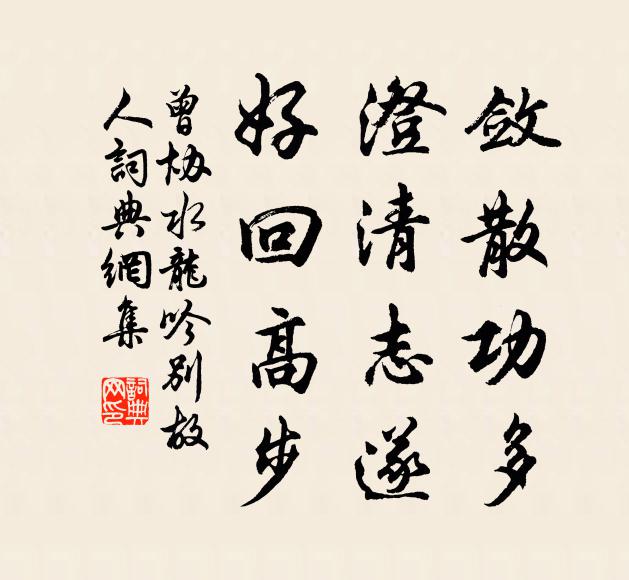 斂散功多
澄清志遂
好回高步
曾協水龍吟別故
人詞典網集
詞典網印